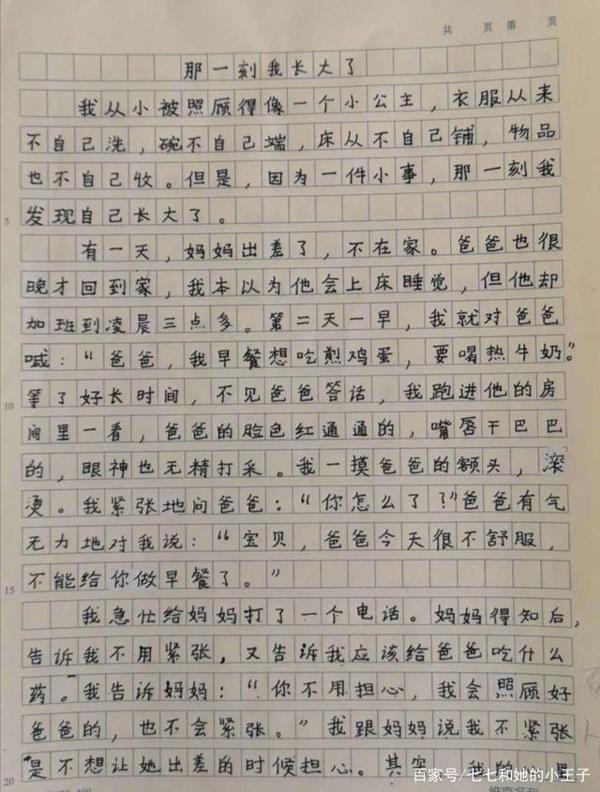 共 页 第 页
那一刻我长大了
我从小被照顾得像一个小公主，衣服从来
不自己洗，碗不自己端，床从不自己铺，物品
也不自己收。但是，因为一件小事，那一刻我
发现自己长大了。
5
有一天，妈妈出差了，不在家。爸爸也很
晚才回到家，我本以为他会上床睡觉，但他却
加班到凌晨三点多。第二天一早，我就对爸爸
喊：“爸爸，我早餐想吃煎鸡蛋，要喝热牛奶。”
等了好长时间，不见爸爸答话，我跑进他的房
10
间里一看，爸爸的脸色红通通的，嘴唇干巴巴
的，眼神也无精打采。我一摸爸爸的额头，滚
烫。我紧张地问爸爸：“你怎么了？”爸爸有气
无力地对我说：“宝贝，爸爸今天很不舒服，
不能给你做早餐了。”
15
我急忙给妈妈打了一个电话。妈妈得知后，
告诉我不用紧张，又告诉我应该给爸爸吃什么
药。我告诉妈妈：“你不用担心，我会照顾好
爸爸的，也不会紧张。”我跟妈妈说我不紧张
是不想让她出差的时候担心。其实，我的心里
20
百家号/七七和她的小王子